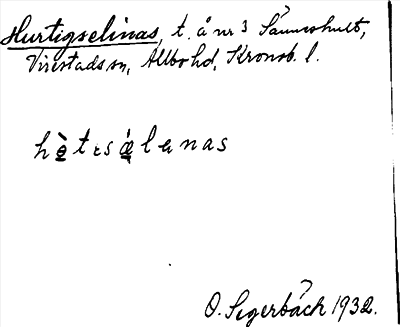 Hurtigselinas, t. å nr 3 Sånnershult,
Virestads sn, Allbo hd, Kronob. l.
hètısǽlenas
O. Segerbäck 1932.